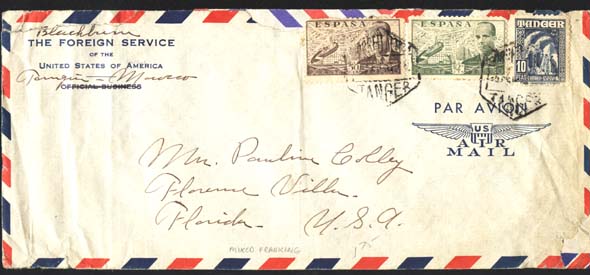 Blackburn
THE FOREIGN SERVICE
OF THE
UNITED STATES OF AMERICA
Tangier - Morocco
OFFICIAL BUSINESS
ESPAÑA
ESPAÑA
TANGER
10
TANGER
TANGER
PAR AVION
US
AIR
MAIL
Mrs. Pauline Colley
Florence Villa
Florida - U.S.A.
MIXED FRANKING
175